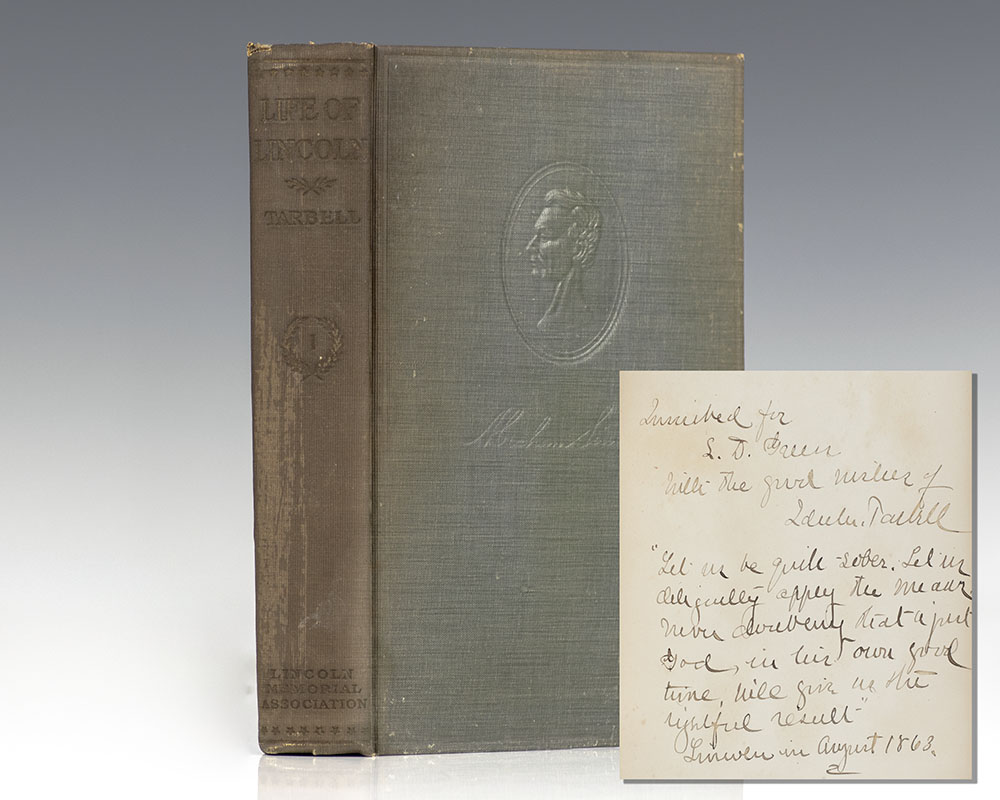 LIFE OF
LINCOLN
TARBELL
I
LINCOLN
MEMORIAL
ASSOCIATION
Abraham
Inscribed for
L. D. Green
With the good wishes of
Ida M. Tarbell
"Let us be quite sober. Let us
diligently apply the means
never doubting that a just
God, in his own good
time, will give us the
rightful result"
Lincoln in August 1863.